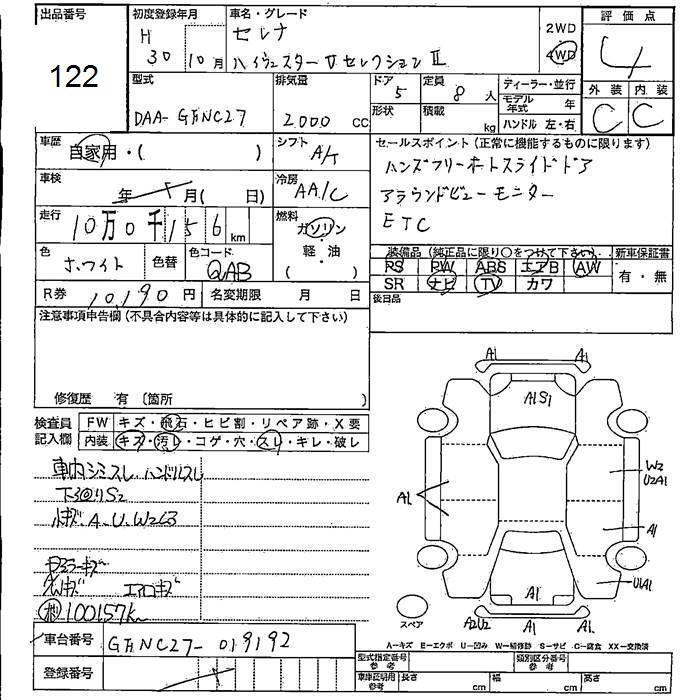 出品番号
122
初度登録年月
H
30 10月
車名・グレード
セレナ
ハイウェスター V セレクション II
2WD
4WD
評価点
4
外装 内装
C C
型式
DAA-GFNC27
排気量
2.000 cc
ドア
5
定員
8 人
形状
積載
kg
ディーラー・並行
モデル年式 年
ハンドル 左・右
車歴
自家用・( )
シフト
A/T
セールスポイント(正常に機能するものに限ります)
ハンズフリーオートスライドドア
アラウンドビューモニター
ETC
車検
年 月( 日)
冷房
AA/C
走行
10万0千156 km
燃料
ガソリン
・
軽・油
( )
色
ホワイト
色替
色コード
QAB
装備品(純正品に限り○をつけて下さい)
PS PW ABS エアB AW
SR ナビ TV カワ
新車保証書
有・無
R券 10,190 円
名変期限 月 日
後日品
注意事項申告欄(不具合内容等は具体的に記入して下さい)
修復歴 有 〔箇所
検査員記入欄
FW キズ・飛石・ヒビ割・リペア跡・X要
内装 キズ・汚レ・コゲ・穴・スレ・キレ・破レ
車内シミスレ ハンドルスレ
小キズ.A.U.W2
エアロキズ
100157km
A1 A1
A1S1
W2
U2A1
A1
A1
U1A1
A1
スペア
A2U2 A1 A1
A=キズ E=エクボ U=凹み W=補修跡 S=サビ C=腐食 XX=交換済
車台番号 GFNC27-019192
登録番号
型式指定番号 参考
類別区分番号 参考
車庫証明用 参考
長さ cm
幅 cm
高さ cm